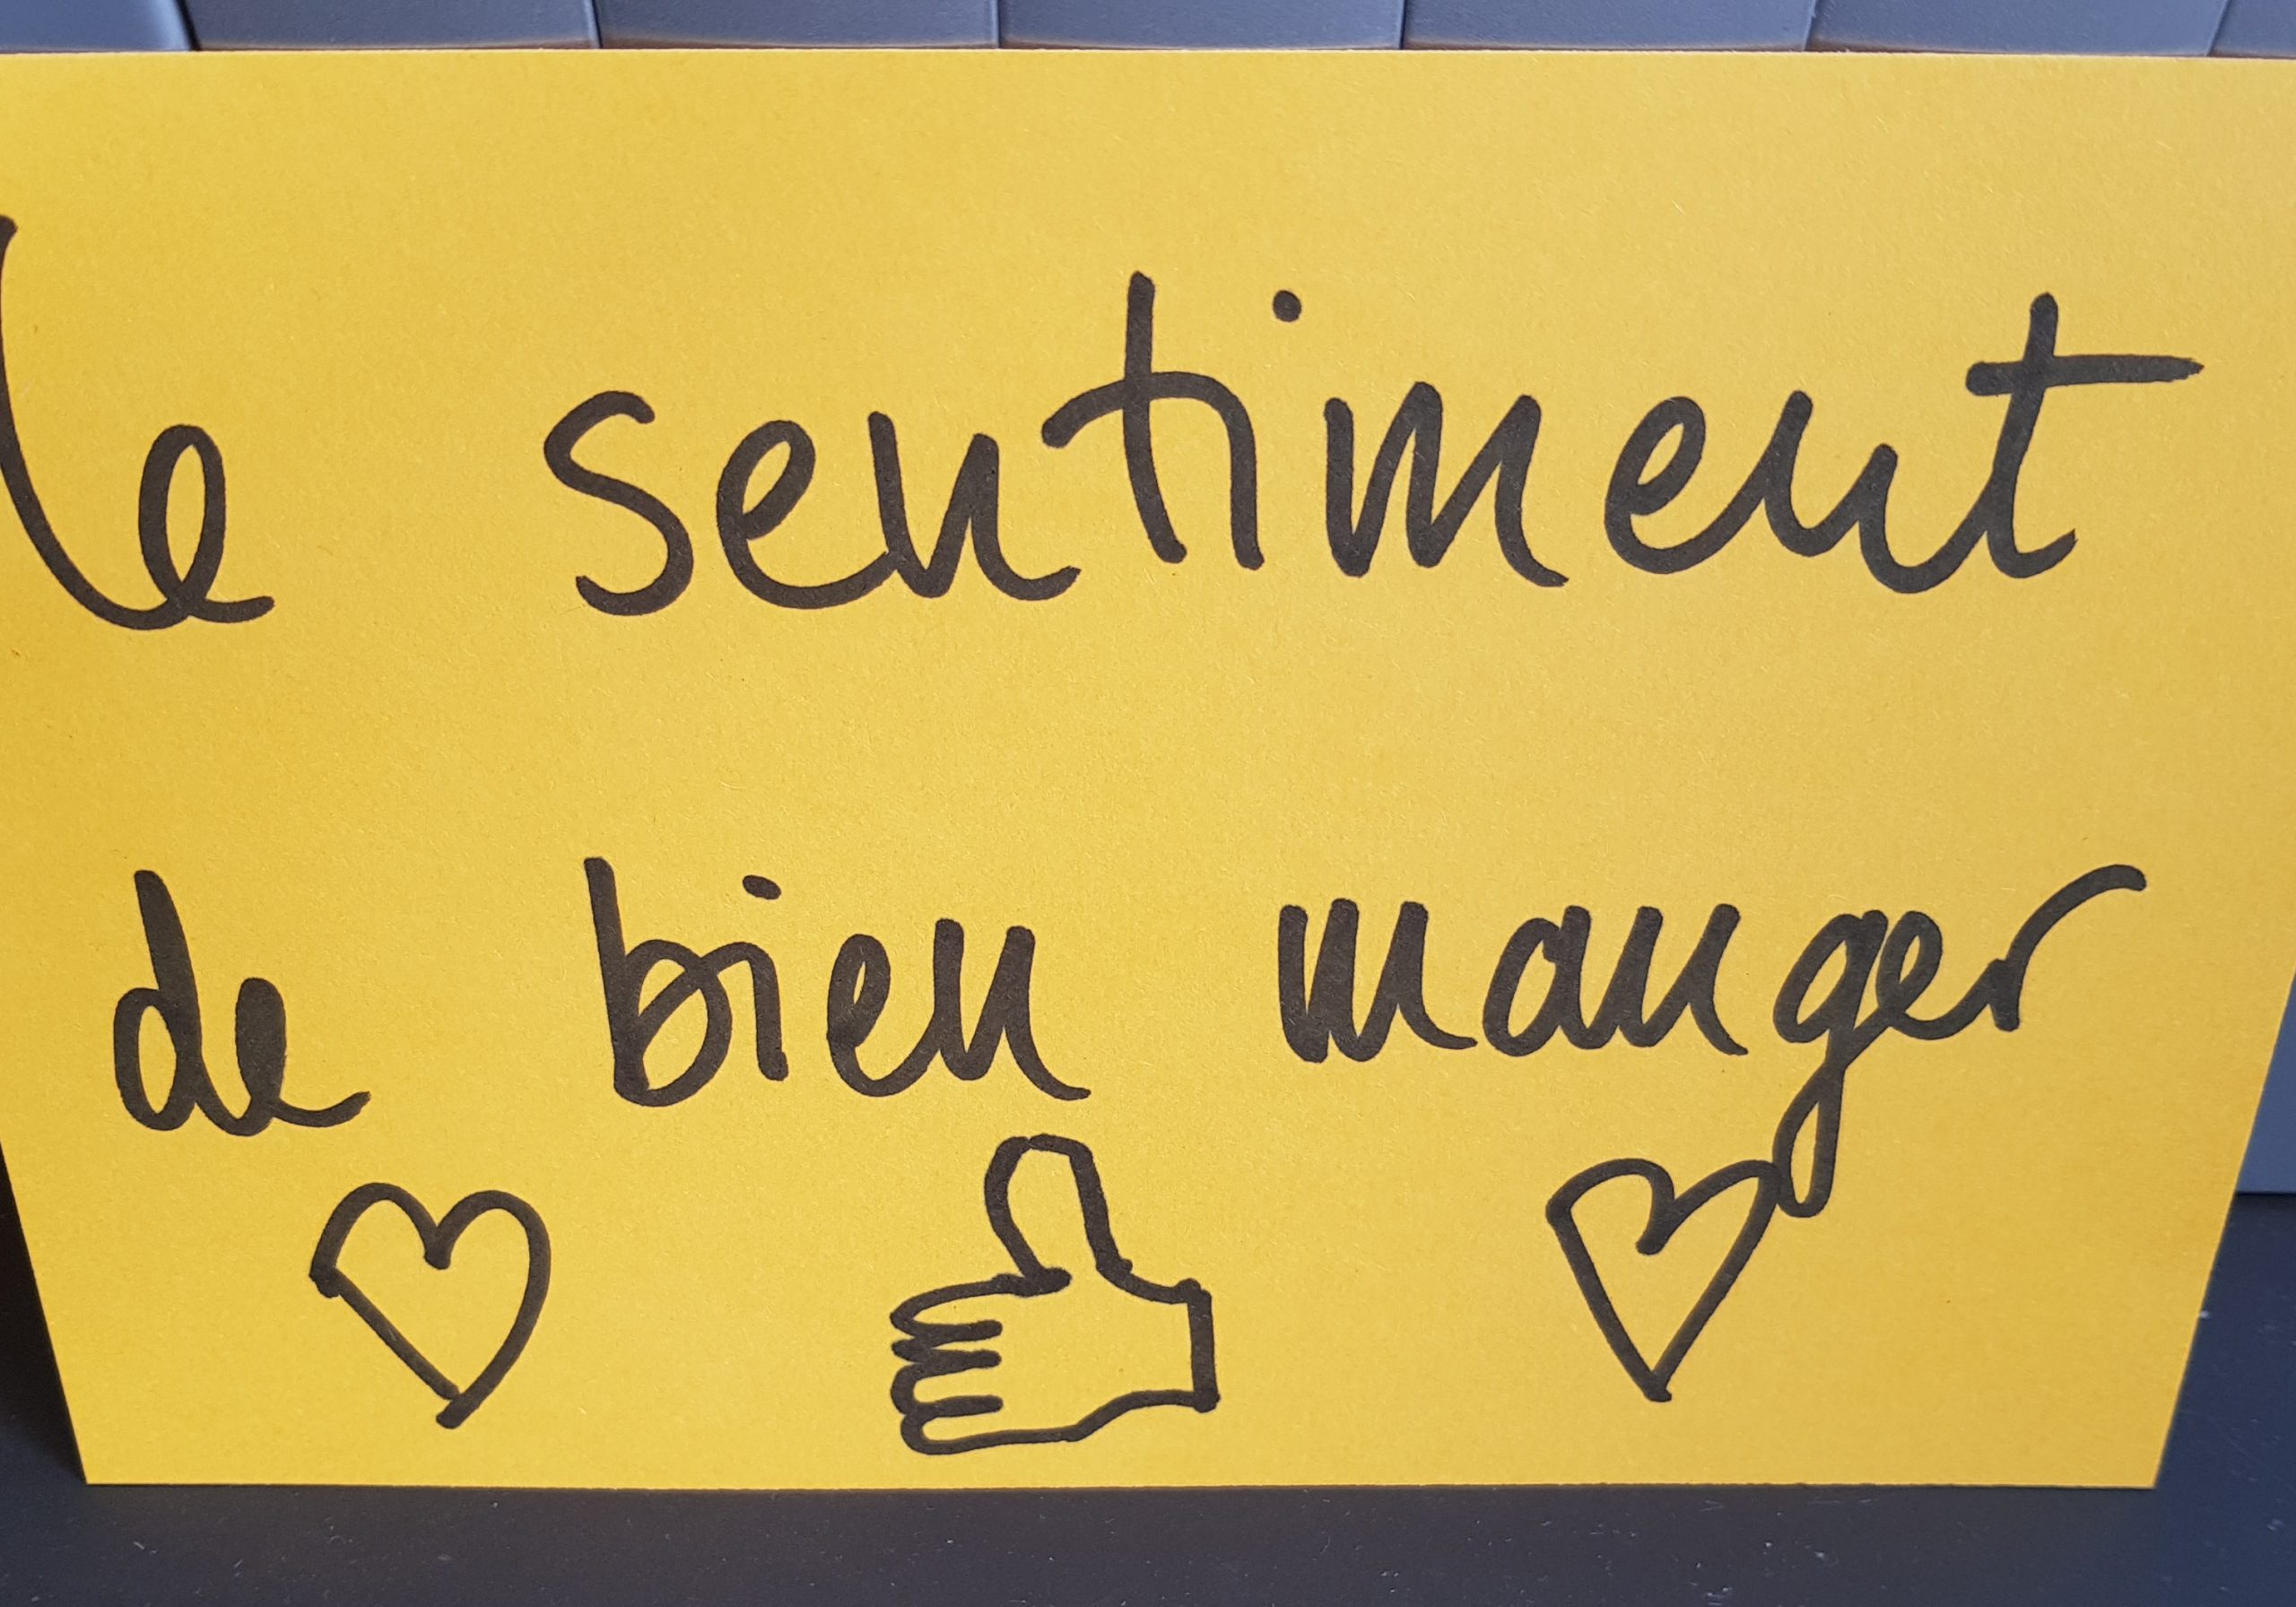 le sentiment
de bien manger